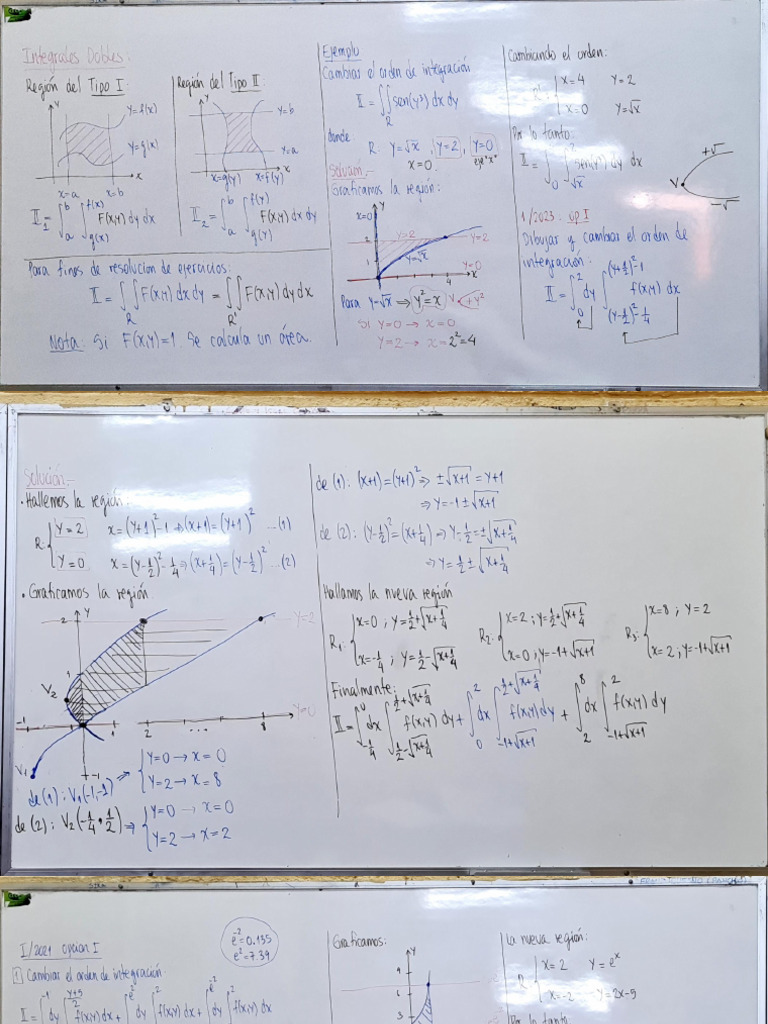 Integrales Dobles:
Región del Tipo I:
y
y=f(x)
y=g(x)
x
x=a
x=b
II₁=∫_a^b ∫_{g(x)}^{f(x)} F(x,y) dy dx
Región del Tipo II:
y
y=b
y=a
x
x=g(y)
x=f(y)
II₂=∫_a^b ∫_{g(y)}^{f(y)} F(x,y) dx dy
Para fines de resolucion de ejercicios:
II=∫∫_R F(x,y) dx dy = ∫∫_{R'} F(x,y) dy dx
Nota: Si F(x,y)=1. Se calcula un área.
Ejemplo
Cambiar el orden de integración
II=∫∫_R sen(y³) dx dy
donde:
R: y=√x , y=2 , y=0
x=0. eje "x"
Solución.-
Graficamos la región:
x=0
y
y=2
2
y=2
y=√x
y=0
4
x
Para y=√x ⇒ y²=x
Si y=0 → x=0
y=2 → x=2²=4
Cambiando el orden:
x=4 y=2
R'
x=0 y=√x
Por lo tanto:
II=∫_0 ∫_{√x}^2 sen(y³) dy dx
+√
V
-√
1/2023. op I
Dibujar y cambiar el orden de
integración:
II=∫_0^2 dy ∫_{(y-½)²-¼}^{(y+1)²-1} f(x,y) dx
Solución.-
· Hallemos la región:
R
y=2 x=(y+1)²-1 ⇒ (x+1)=(y+1)² ...(1)
y=0 x=(y-½)²-¼ ⇒ (x+¼)=(y-½)² ...(2)
· Graficamos la región.
y
2
y=2
1
V₂
y=0
-1
1
2
8
V₁
-1
de (1): V₁(-1,-1) ⇒
y=0 → x=0
y=2 → x=8
de (2): V₂(-¼,½) ⇒
y=0 → x=0
y=2 → x=2
de (1): (x+1)=(y+1)² ⇒ ±√(x+1)=y+1
⇒ y=-1±√(x+1)
de (2): (y-½)²=(x+¼) ⇒ y-½=±√(x+¼)
⇒ y=½±√(x+¼)
Hallamos la nueva región
R₁: x=0 ; y=½+√(x+¼)
x=-¼ ; y=½-√(x+¼)
R₂: x=2 ; y=½+√(x+¼)
x=0 ; y=-1+√(x+1)
R₃: x=8 ; y=2
x=2 ; y=-1+√(x+1)
Finalmente:
II=∫_{-¼}^0 dx ∫_{½-√(x+¼)}^{½+√(x+¼)} f(x,y) dy + ∫_0^2 dx ∫_{-1+√(x+1)}^{½+√(x+¼)} f(x,y) dy + ∫_2^8 dx ∫_{-1+√(x+1)}^2 f(x,y) dy
I/2021 opcion I
e⁻²=0.135
e²=7.39
1 Cambiar el orden de integración
Graficamos:
y
9
6
3
La nueva región:
R
x=2 y=eˣ
x=-2 y=2x-5
Por lo tanto: